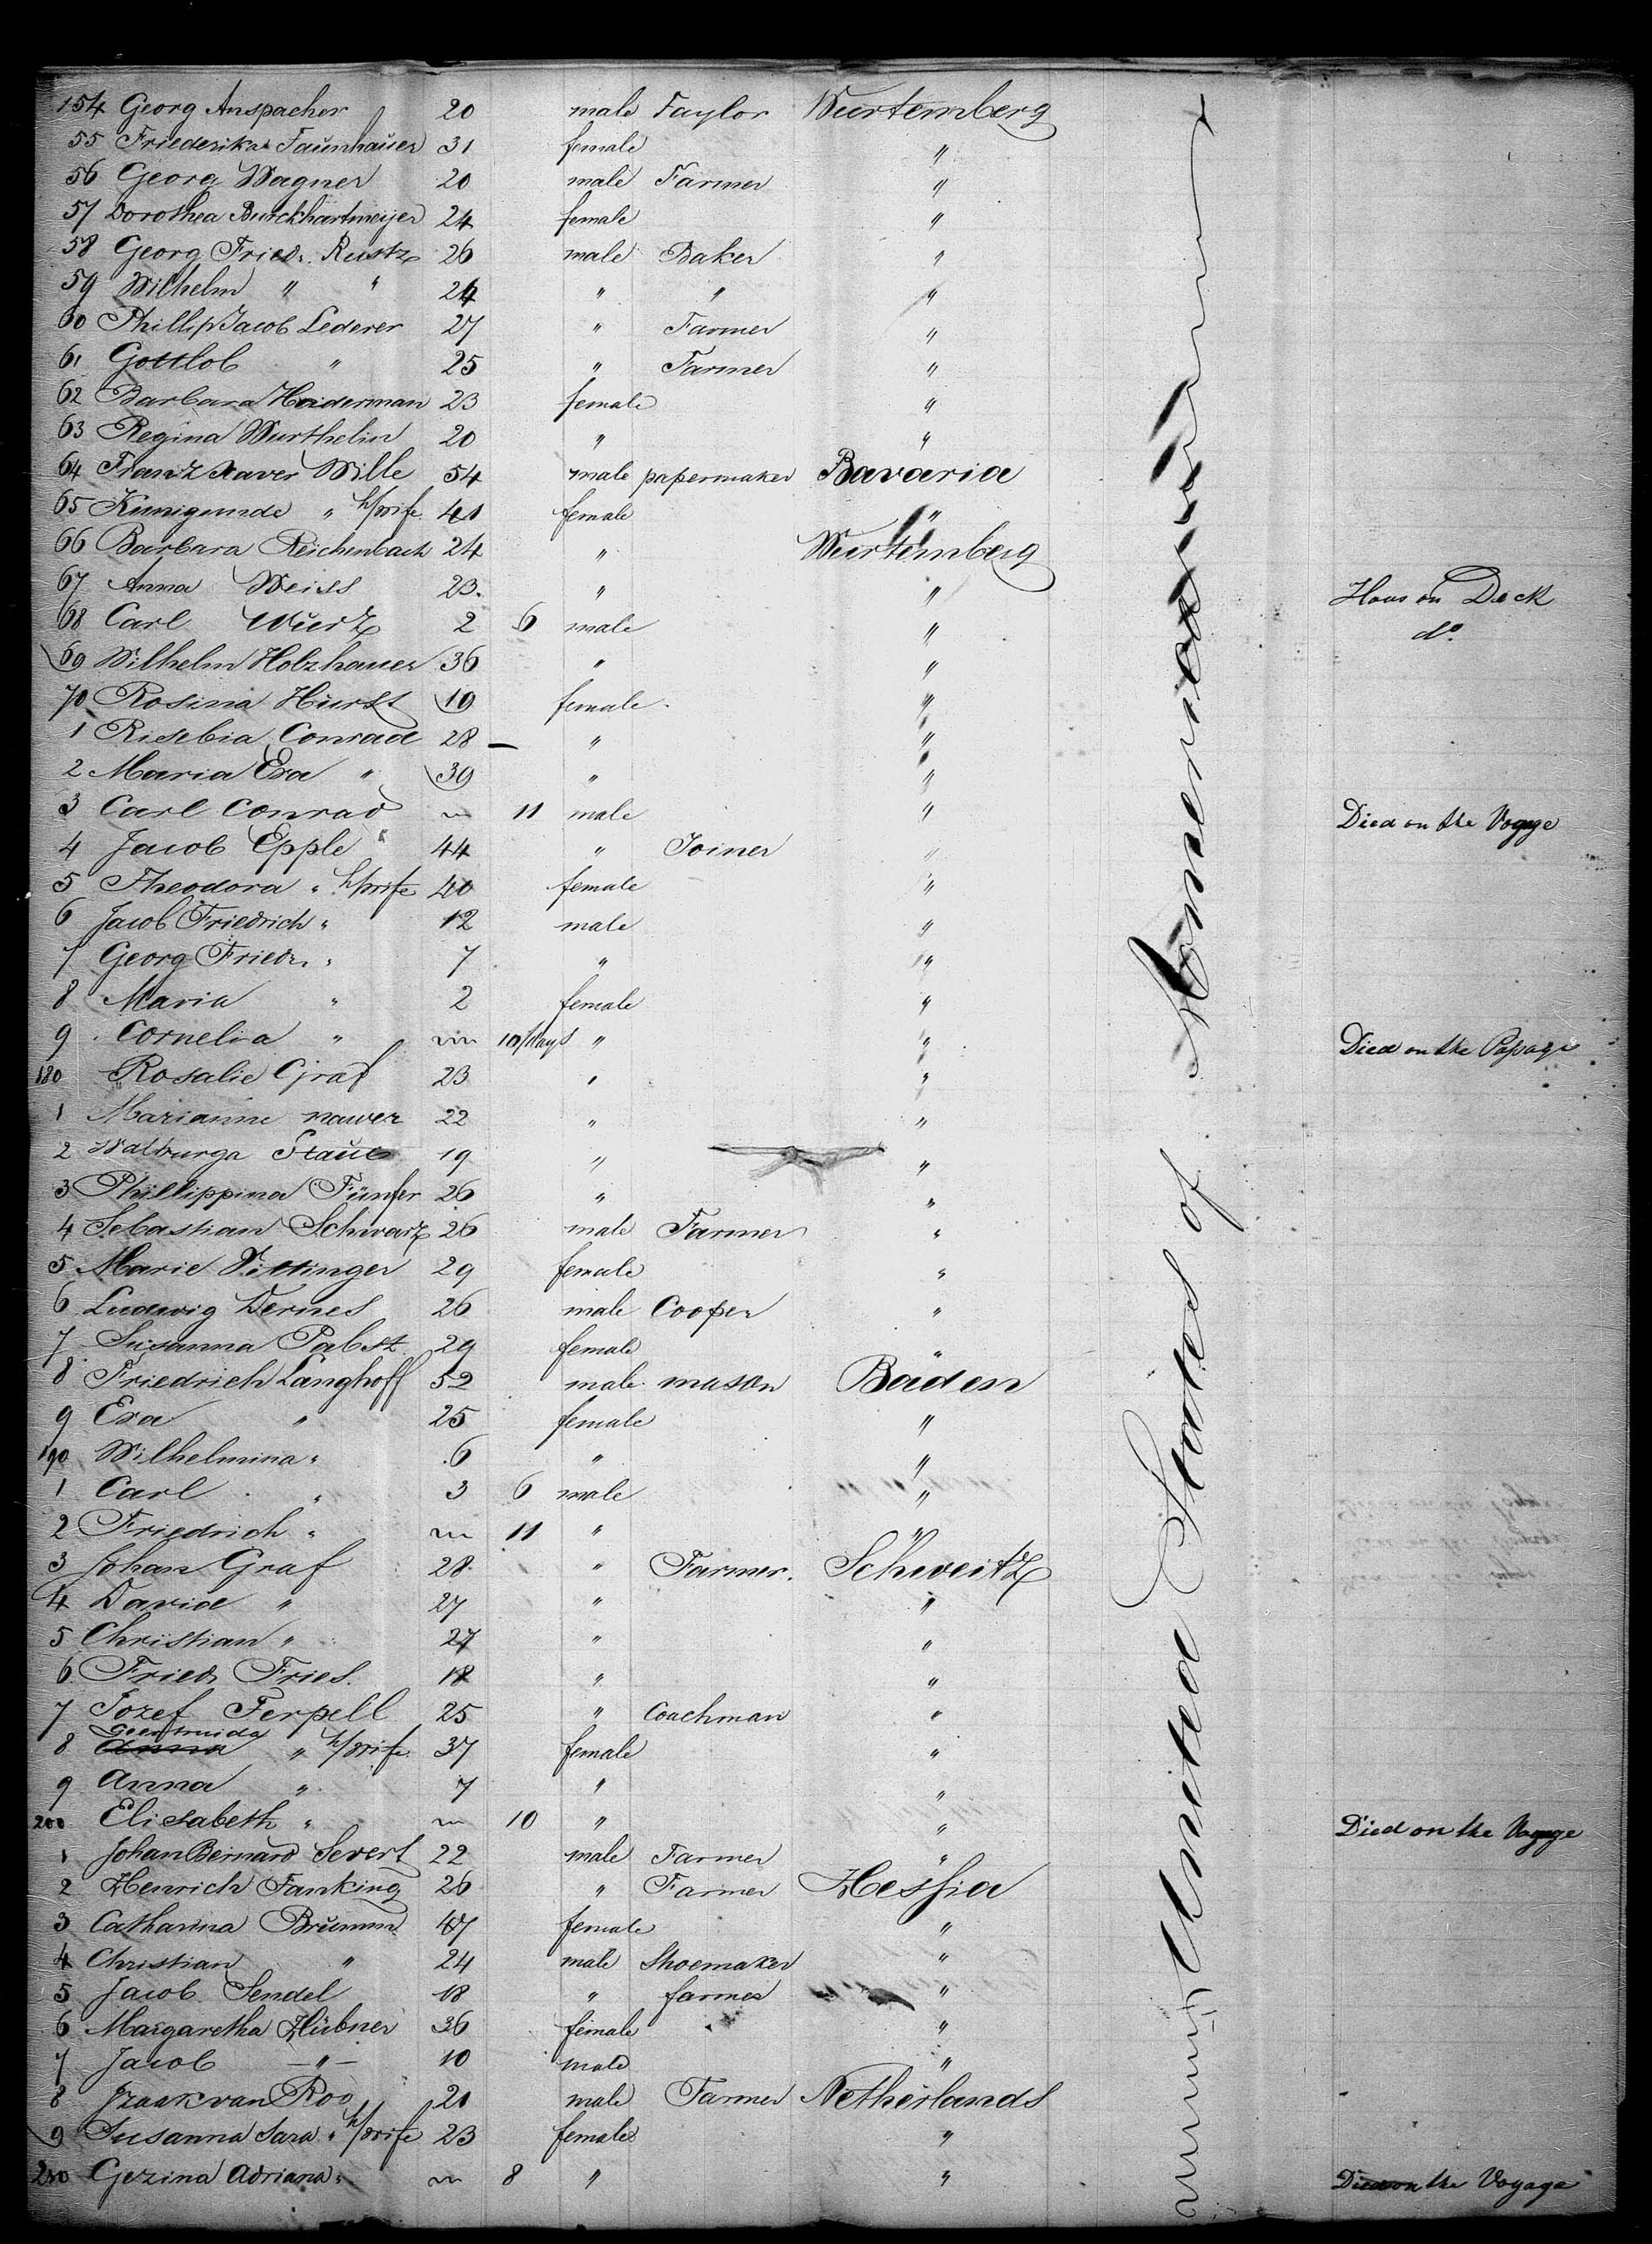 154 Georg Anspacher 20 male Taylor Wurtemberg
55 Friederika Faunhauser 31 female "
56 Georg Wagner 20 male Farmer "
57 Dorothea Burckhartmeijer 24 female "
58 Georg Friedr. Rustz 26 male Baker "
59 Wilhelm " " 24 " " "
60 Phillip Jacob Lederer 27 " Farmer "
61 Gottlob " 25 " Farmer "
62 Barbara Haiderman 23 female "
63 Regina Wurthelin 20 " "
64 Franz Xaver Wille 54 male papermaker Bavaria
65 Kunigunde " h/wife 41 female "
66 Barbara Reichenbach 24 " Wurtemberg
67 Anna Weiss 23. " " Haus on Deck
68 Carl Würz 2 6 male " do.
69 Wilhelm Holzhauer 36 " "
70 Rosina Hürst 19 female "
1 Risebia Conrad 28 — " "
2 Maria Eva " 39 " "
3 Carl Conrad 11 male " Died on the Voyge
4 Jacob Epple 44 " Joiner "
5 Theodora " h/wife 40 female "
6 Jacob Friedrich " 12 male "
7 Georg Friedr. " 7 " "
8 Maria " 2 female "
9 Cornelia " 10/days " " Died on the Passage
180 Rosalie Graf 23 " "
1 Marianne nawer 22 " "
2 Walburga 19 " "
3 Phillippina Fünfer 26 " "
4 Sebastian Schwarz 26 male Farmer "
5 Marie Vittinger 29 female "
6 Ludwig Dernes 26 male Cooper "
7 Susanna Pabst 29 female "
8 Friedrich Länghoff 52 male mason Baden
9 Eva " 25 female "
190 Wilhelmina " 6 " "
1 Carl " 3 6 male "
2 Friedrich " 11 " "
3 Johan Graf 28 " Farmer. Schweitz
4 David " 27 " "
5 Christian " 27 " "
6 Friedr Fries. 18 " "
7 Jozef Ferpell 25 " Coachman "
8 Geertruida " h/wife 37 female "
9 Anna " 7 " "
200 Elisabeth " 10 " " Died on the Voyage
1 Johan Bernard Severt 22 male Farmer "
2 Henrich Fanking 26 " Farmer Hessia
3 Catharina Brumm 47 female "
4 Christian " 24 male Shoemaker "
5 Jacob Sendel 18 " farmer "
6 Margaretha Hübner 36 female "
7 Jacob —"— 10 male "
8 Izaak van Roo 21 male Farmer Netherlands
9 Susanna Sara " h/wife 23 female "
210 Gezina Adriana " 8 " " Died on the Voyage
United States of